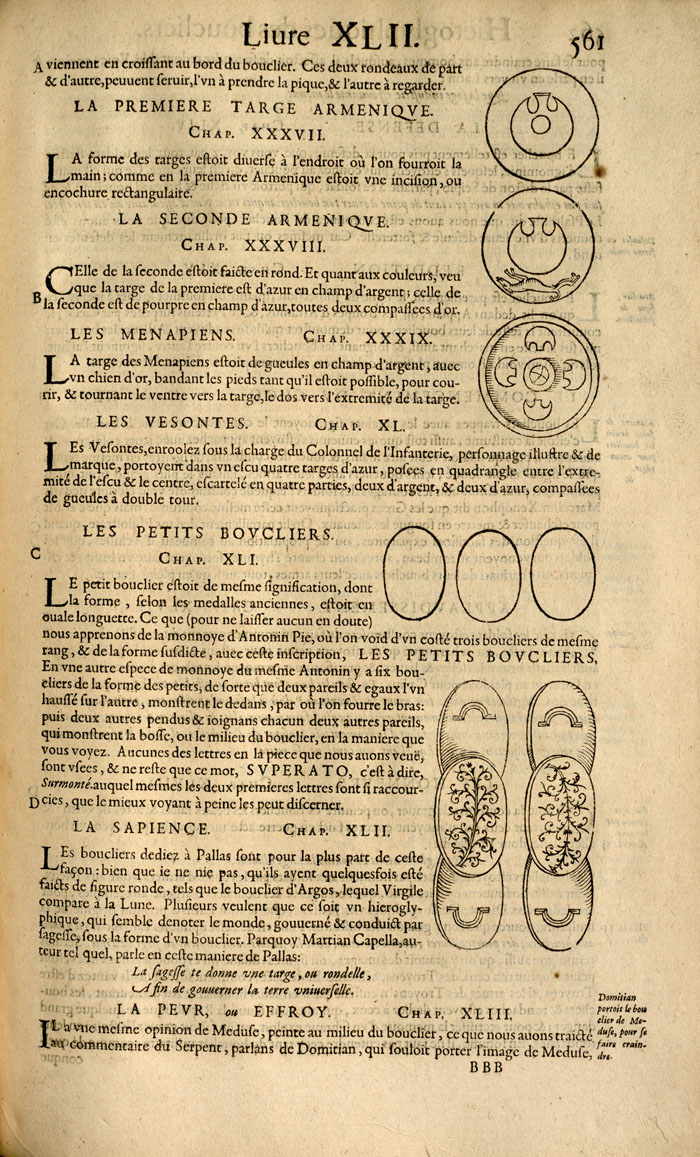 Liure XLII. 561
A viennent en croissant au bord du bouclier. Ces deux rondeaux de part
& d'autre, peuuent seruir, l'vn à prendre la pique, & l'autre à regarder.
LA PREMIERE TARGE ARMENIQVE.
CHAP. XXXVII.
LA forme des targes estoit diuerse à l'endroit où l'on fourroit la
main; comme en la premiere Armenique estoit vne incision, ou
encochure rectangulaire.
LA SECONDE ARMENIQVE.
CHAP. XXXVIII.
CElle de la seconde estoit faicte en rond. Et quant aux couleurs, veu
que la targe de la premiere est d'azur en champ d'argent; celle de
B la seconde est de pourpre en champ d'azur, toutes deux compassees d'or.
LES MENAPIENS. CHAP. XXXIX.
LA targe des Menapiens estoit de gueules en champ d'argent, auec
vn chien d'or, bandant les pieds tant qu'il estoit possible, pour cou-
rir, & tournant le ventre vers la targe, le dos vers l'extremité de la targe.
LES VESONTES. CHAP. XL.
LEs Vesontes, enroolez sous la charge du Colonnel de l'Infanterie, personnage illustre & de
marque, portoyent dans vn escu quatre targes d'azur, posees en quadrangle entre l'extre-
mité de l'escu & le centre, escartelé en quatre parties, deux d'argent, & deux d'azur, compassees
de gueules à double tour.
LES PETITS BOVCLIERS.
C CHAP. XLI.
LE petit bouclier estoit de mesme signification, dont
la forme, selon les medalles anciennes, estoit en
ouale longuette. Ce que (pour ne laisser aucun en doute)
nous apprenons de la monnoye d'Antonin Pie, où l'on void d'vn costé trois boucliers de mesme
rang, & de la forme susdicte, auec ceste inscription, LES PETITS BOVCLIERS.
En vne autre espece de monnoye du mesme Antonin y a six bou-
cliers de la forme des petits, de sorte que deux pareils & egaux l'vn
haussé sur l'autre, monstrent le dedans, par où l'on fourre le bras:
puis deux autres pendus & ioignans chacun deux autres pareils,
qui monstrent la bosse, ou le milieu du bouclier, en la maniere que
vous voyez. Aucunes des lettres en la piece que nous auons veuë,
sont vsees, & ne reste que ce mot, SVPERATO, c'est à dire,
Surmonté. auquel mesmes les deux premieres lettres sont si raccour-
D cies, que le mieux voyant à peine les peut discerner.
LA SAPIENCE. CHAP. XLII.
LEs boucliers dediez à Pallas sont pour la plus part de ceste
façon: bien que ie ne nie pas, qu'ils ayent quelquesfois esté
faicts de figure ronde, tels que le bouclier d'Argos, lequel Virgile
compare à la Lune. Plusieurs veulent que ce soit vn hierogly-
phique, qui semble denoter le monde, gouuerné & conduict par
sagesse, sous la forme d'vn bouclier. Parquoy Martian Capella, au-
teur tel quel, parle en ceste maniere de Pallas:
La sagesse te donne vne targe, ou rondelle,
Afin de gouuerner la terre vniuerselle.
LA PEVR, ou EFFROY. CHAP. XLIII.
IL a vne mesme opinion de Meduse, peinte au milieu du bouclier, ce que nous auons traicté
au commentaire du Serpent, parlans de Domitian, qui souloit porter l'image de Meduse,
Domitian
portoit le bou
clier de Me-
duse, pour se
faire crain-
dre.
BBB